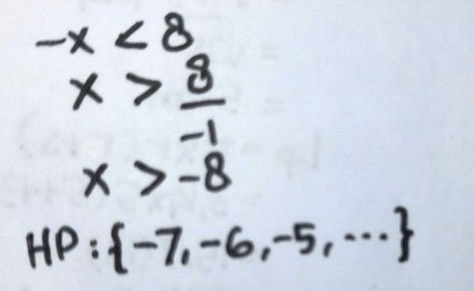 -x < 8
x > 8/-1
x > -8
HP : {-7, -6, -5, ...}